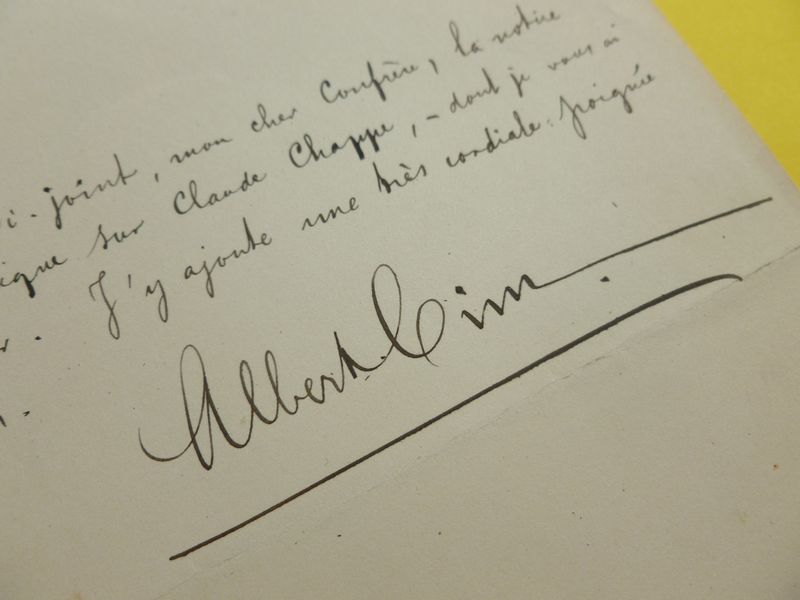 i-joint, mon cher Confrère, la notice
ique sur Claude Chappe, - dont je vous ai
r. J'y ajoute une très cordiale poignée
Albert Cim.